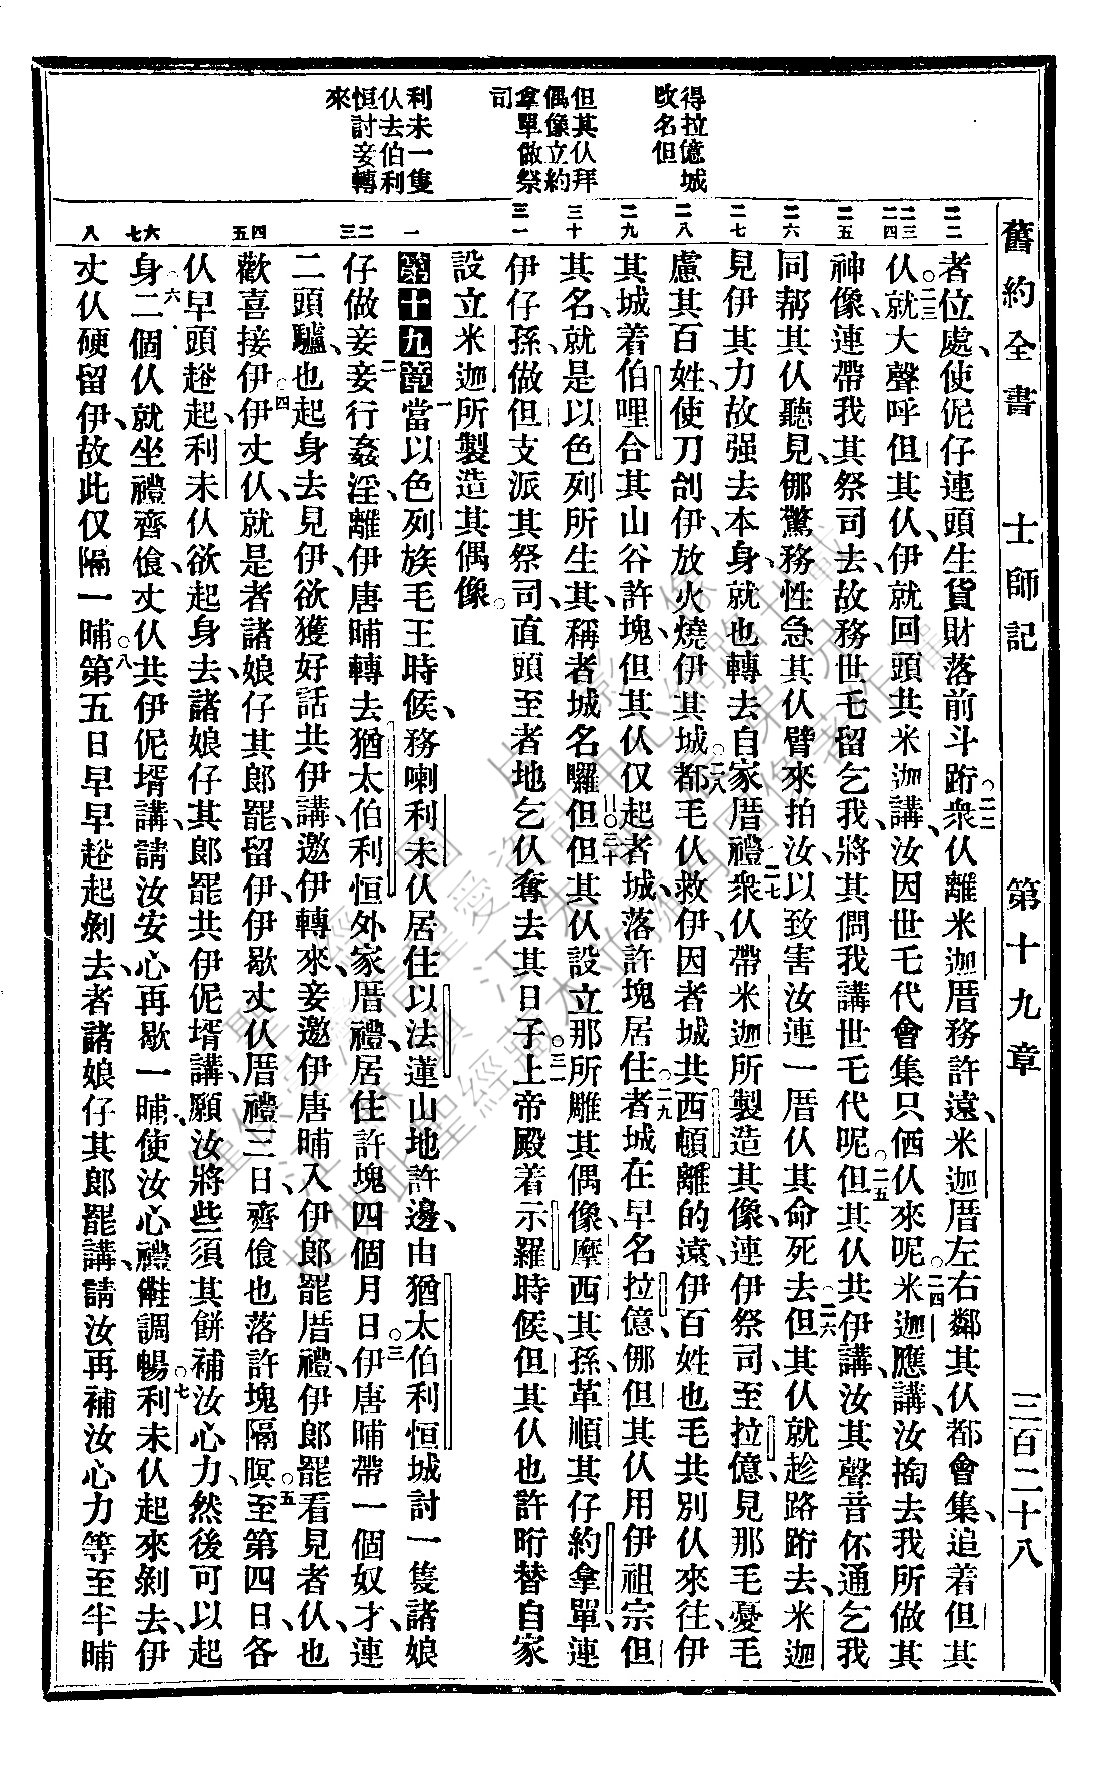 舊約全書　士師記　第十九章　三百二十八
得拉億城
改名但
但其仈拜
偶像立約
拿單做祭
司
利未一隻
仈去伯利
恒討妾轉
來
二二
二三
二四
二五
二六
二七
二八
二九
三十
三一
一
二
三
四
五
六
七
八
者位處、使伲仔連頭生貨財落前斗跻。○二二衆仈離米迦厝務許遠、米迦厝左右鄰其仈都會集、追着但其
仈。○二三就大聲呼但其仈、伊就回頭共米迦講、汝因世乇代會集只儕仈來呢。○二四米迦應講、汝掏去我所做其
神像、連帶我其祭司去、故務世乇留乞我、將其問我講世乇代呢。○二五但其仈共伊講、汝其聲音伓通乞我
同帮其仈聽見、㑚驚務性急其仈臂來拍汝、以致害汝連一厝仈其命死去。○二六但其仈就趁路跻去、米迦
見伊其力故强去本身、就也轉去自家厝禮。二七衆仈帶米迦所製造其像、連伊祭司、至拉億、見那毛憂毛
慮其百姓、使刀刣伊、放火燒伊其城。○二八都毛仈救伊、因者城共西頓離的遠、伊百姓也毛共別仈來往、伊
其城着伯哩合其山谷許塊、但其仈仅起者城、落許塊居住。○二九者城在早名拉億、㑚但其仈用伊祖宗但
其名、就是以色列所生其、稱者城名囉但。○三十但其仈設立那所雕其偶像、摩西其孫革順其仔約拿單、連
伊仔孫、做但支派其祭司、直頭至者地乞仈奪去其日子。○三一上帝殿着示羅時候、但其仈也許跻替自家
設立米迦所製造其偶像。
第十九章　一當以色列族毛王時候、務喇利未仈居住以法蓮山地許邊、由猶太伯利恒城討一隻諸娘
仔做妾、二妾行姦淫、離伊唐晡轉去猶太伯利恒外家厝禮、居住許塊四個月日。○三伊唐晡帶一個奴才、連
二頭驢、也起身去見伊、欲獲好話共伊講、邀伊轉來、妾邀伊唐晡入伊郎罷厝禮、伊郎罷看見者仈、也
歡喜接伊。○四伊丈仈、就是者諸娘仔其郎罷、留伊、伊歇丈仈厝禮三日、齊飧也落許塊隔暝。○五至第四日、各
仈早頭趖起、利未仈欲起身去、諸娘仔其郎罷共伊伲壻講、願汝將些須其餅補汝心力、然後可以起
身。○六二個仈就坐禮齊飧、丈仈共伊伲壻講、請汝安心再歇一晡、使汝心禮𩣑調暢。○七利未仈起來剝去、伊
丈仈硬留伊、故此仅隔一晡。○八第五日早早趖起剝去、者諸娘仔其郎罷講、請汝再補汝心力、等至半晡